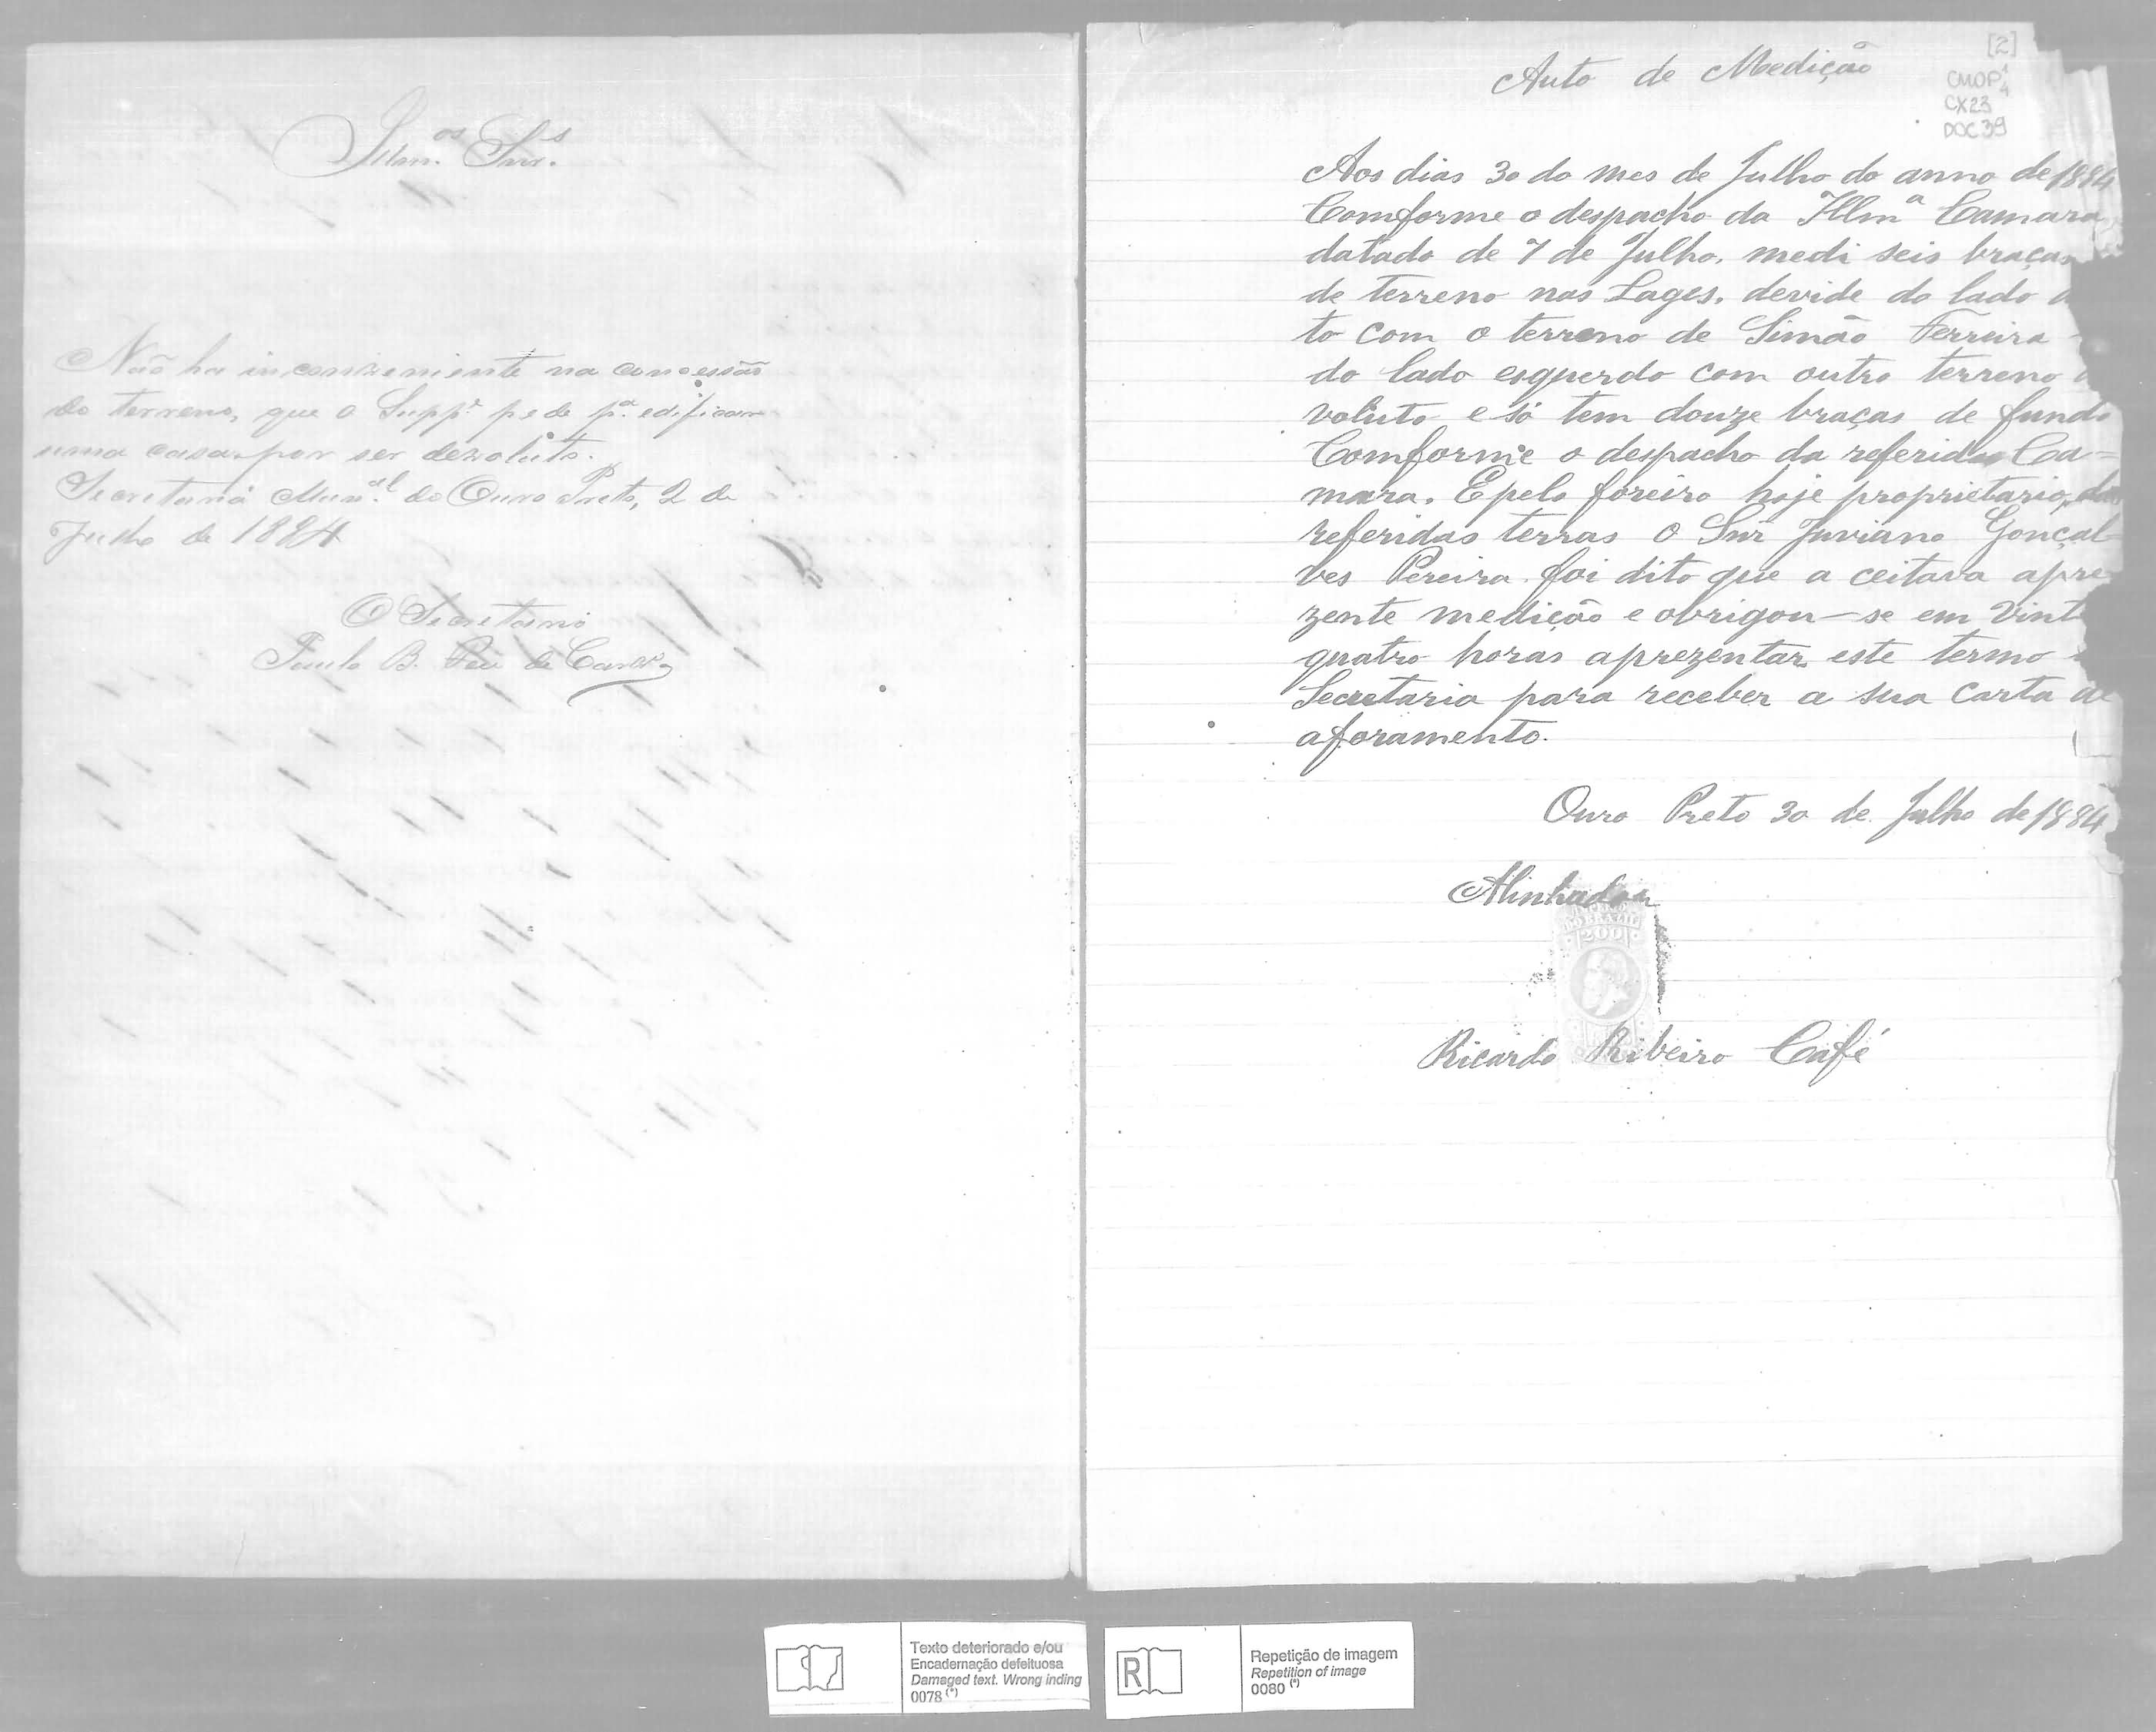 Illm.os Snr.s
Não ha inconveniente na concessão
do terreno, que o Supp.e pede p.a edificar
uma casa, por ser devoluto.
Secretaria Mun.al do Ouro Preto, 2 de
Julho de 1884
O Secretario
Paulo B. de
[2]
CMOP
CX23
DOC 39
Auto de Medição
Aos dias 30 do mes de Julho do anno de 1884
Comforme o despacho da Illm.a Camara
datado de 7 de Julho. medi seis braças
de terreno nas Lages. devide do lado
to com o terreno de Simão Ferreira
do lado esquerdo com outro terreno
voluto e só tem douze braças de fundo
Comforme o despacho da referida Ca=
mara. E pelo foreiro hoje proprietario, das
referidas terras o Snr Juviano Gonçal=
ves Pereira foi dito que a ceitava apre
zente medição e obrigou-se em Vint
quatro horas aprezentar este termo
Secretaria para receber a sua carta de
aforamento.
Ouro Preto 30 de Julho de 1884
Alinhador
DO BRAZIL
200
Ricardo Ribeiro Café
Texto deteriorado e/ou
Encadernação defeituosa
Damaged text. Wrong inding
0078 (*)
R
Repetição de imagem
Repetition of image
0080 (*)